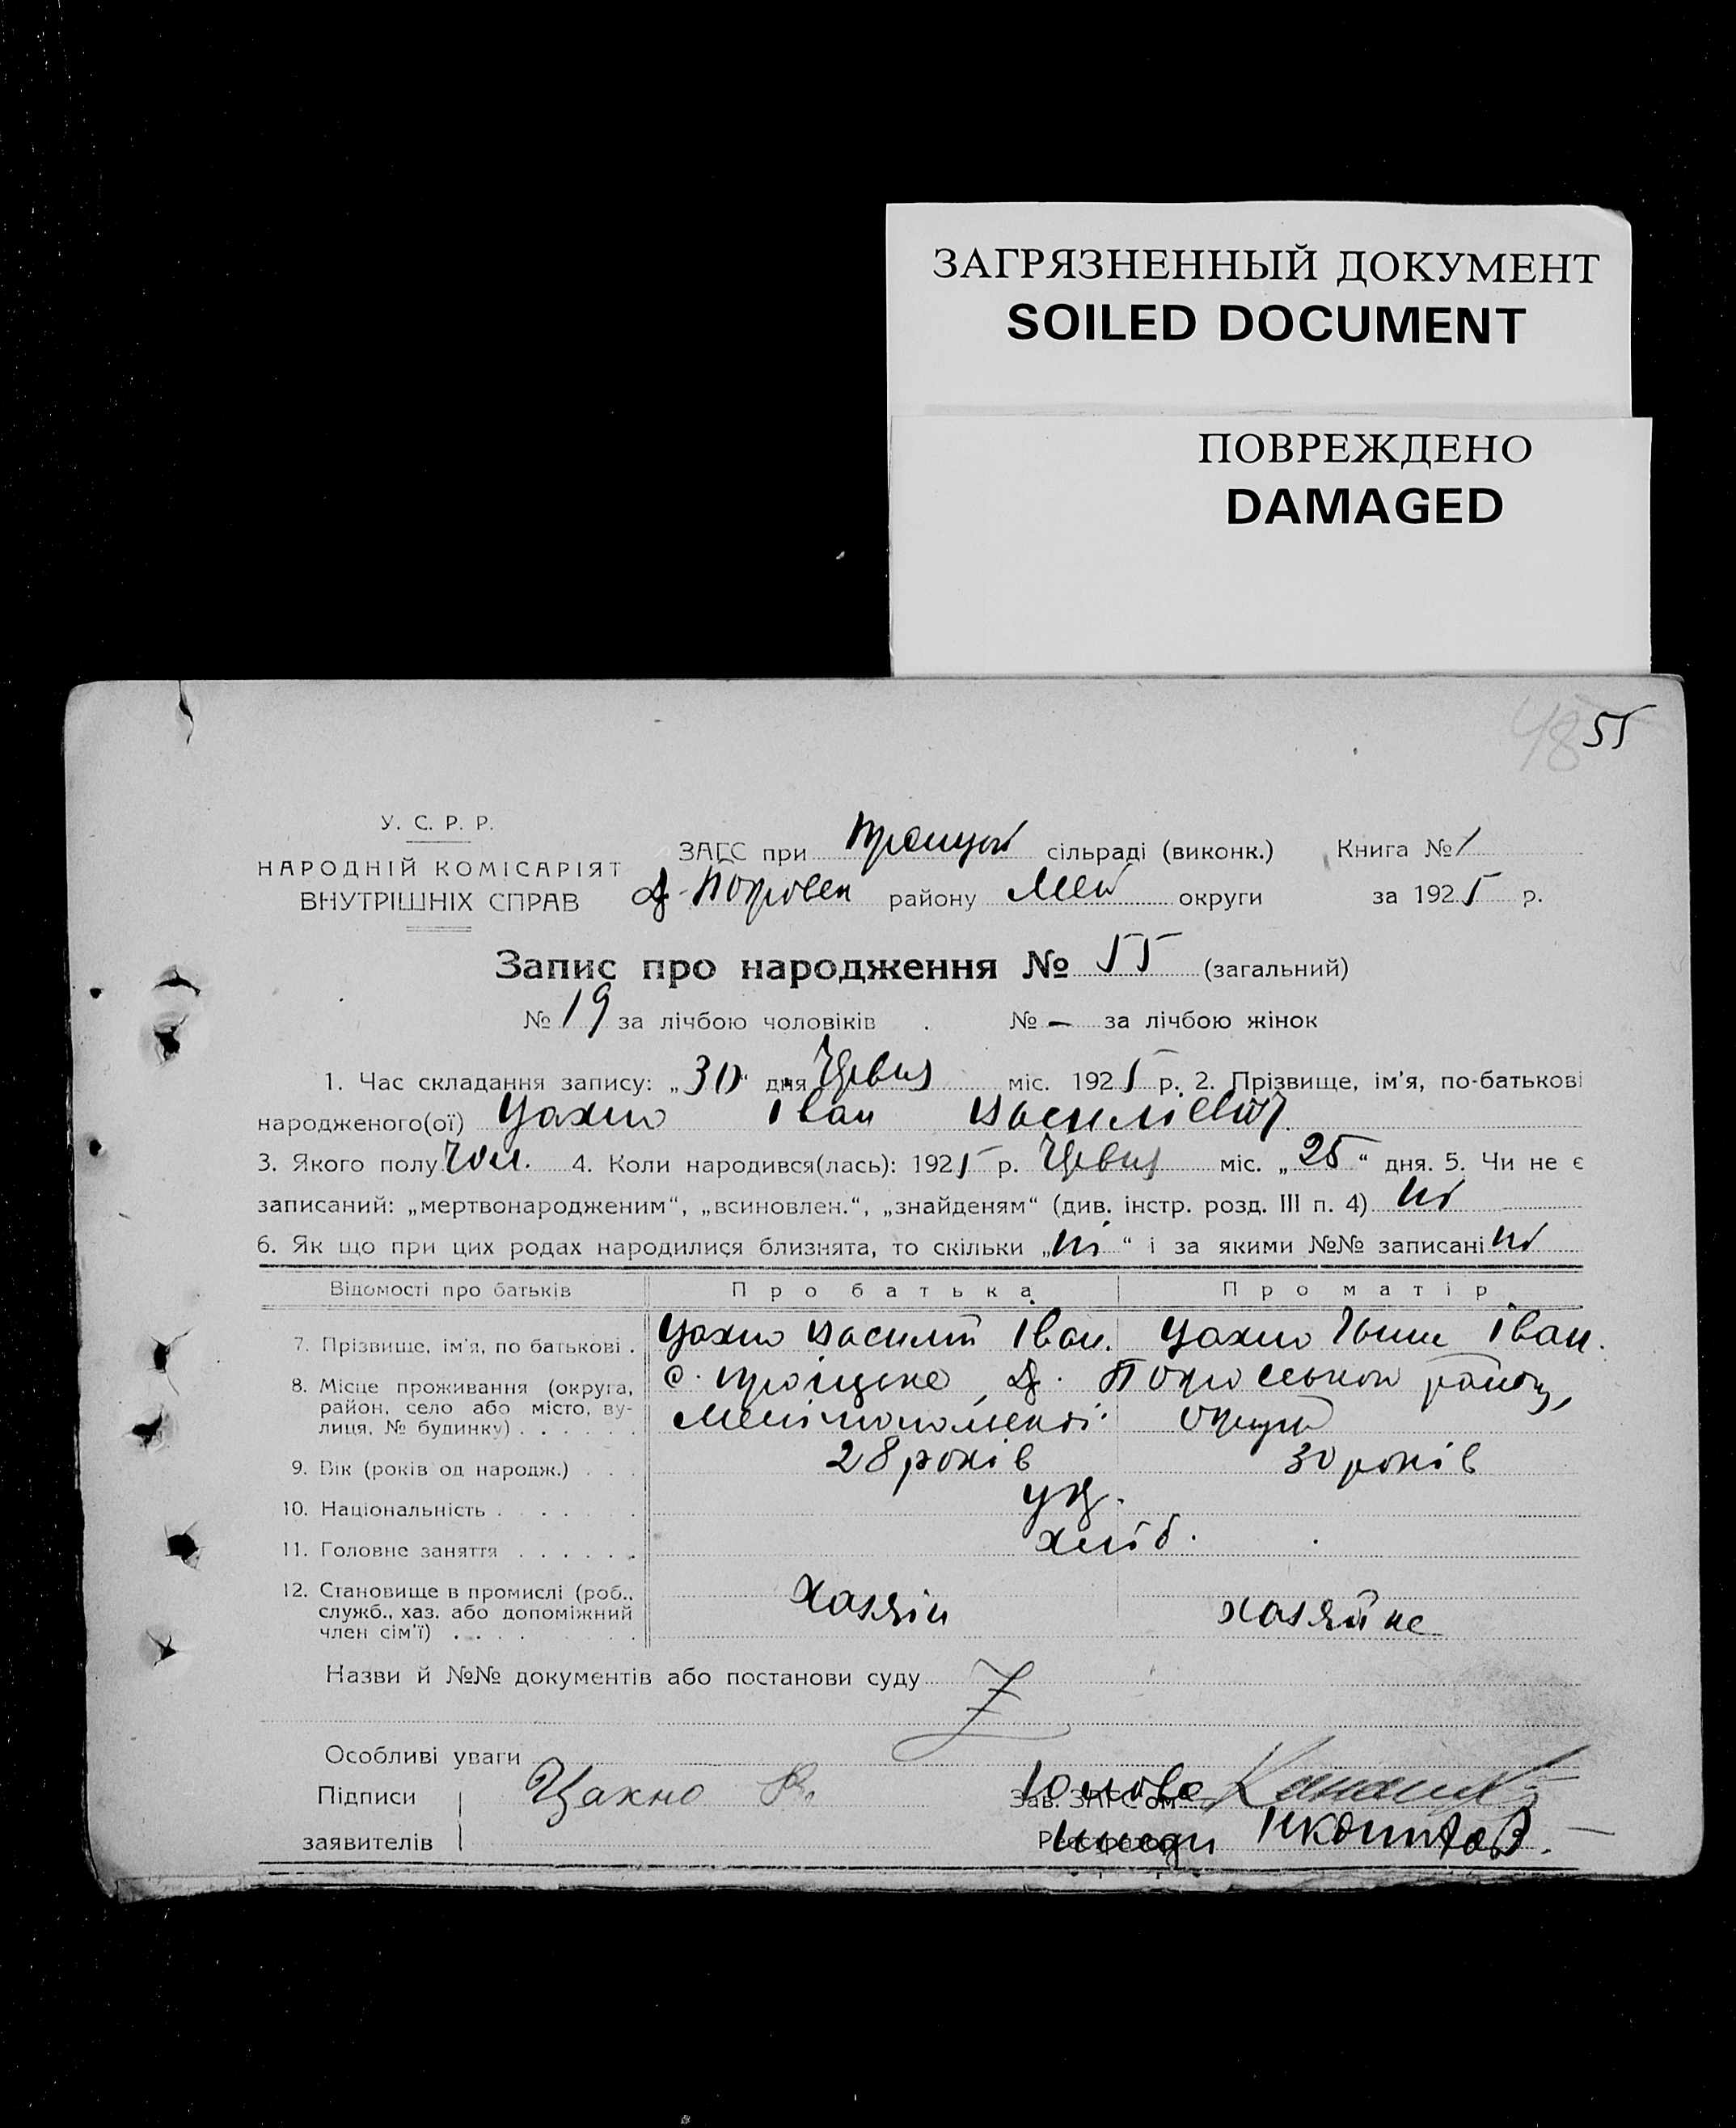 ЗАГРЯЗНЕННЫЙ ДОКУМЕНТ
SOILED DOCUMENT
ПОВРЕЖДЕНО
DAMAGED
48 55
У. С. Р. Р.
НАРОДНІЙ КОМІСАРІЯТ
ВНУТРІШНІХ СПРАВ
ЗАГС при сільраді (виконк.) Книга № 1
району Мел округи за 1925 р.
Запис про народження № 55 (загальний)
№ 19 за лічбою чоловіків . № – за лічбою жінок
1. Час складання запису: „30“ дня Червня міс. 1925 р. 2. Прізвище, ім’я, по-батькові
народженого(ої) Цахно Іван Василієвич
3. Якого полу чол. 4. Коли народився(лась): 1925 р. Червня міс. „25“ дня. 5. Чи не є
записаний: „мертвонародженим“, „всиновлен.“, „знайденям“ (див. інстр. розд. III п. 4) ні
6. Як що при цих родах народилися близнята, то скільки „ні“ і за якими №№ записані ні
Відомості про батьків Про батька Про матір
7. Прізвище, ім’я, по батькові . Цахно Василій Іван. Цахно Іван.
8. Місце проживання (округа, с. Троїцьке
район, село або місто, ву-
лиця, № будинку) . . . . . . округи
9. Вік (років од народж.) . . . 28 років 30 років
10. Національність . . . . . . . укр.
11. Головне заняття . . . . . . хліб.
12. Становище в промислі (роб., Хазяін хазяйка
служб., хаз. або допоміжний
член сім’ї) . . . .
Назви й №№ документів або постанови суду Z
Особливі уваги
Підписи Цахно В. Зав. ЗАГС’ом Голова
заявителів